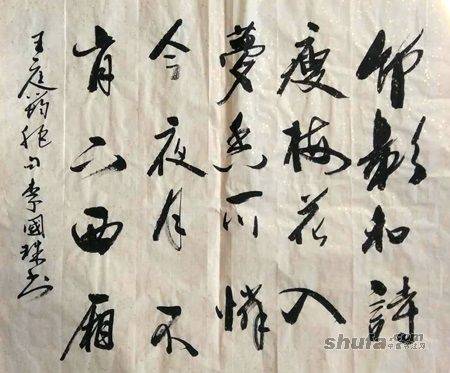 竹影和詩
瘦梅花入
夢香可憐
今夜月不
肯下西厢
王庭筠絶句李國珠书
shufa.com